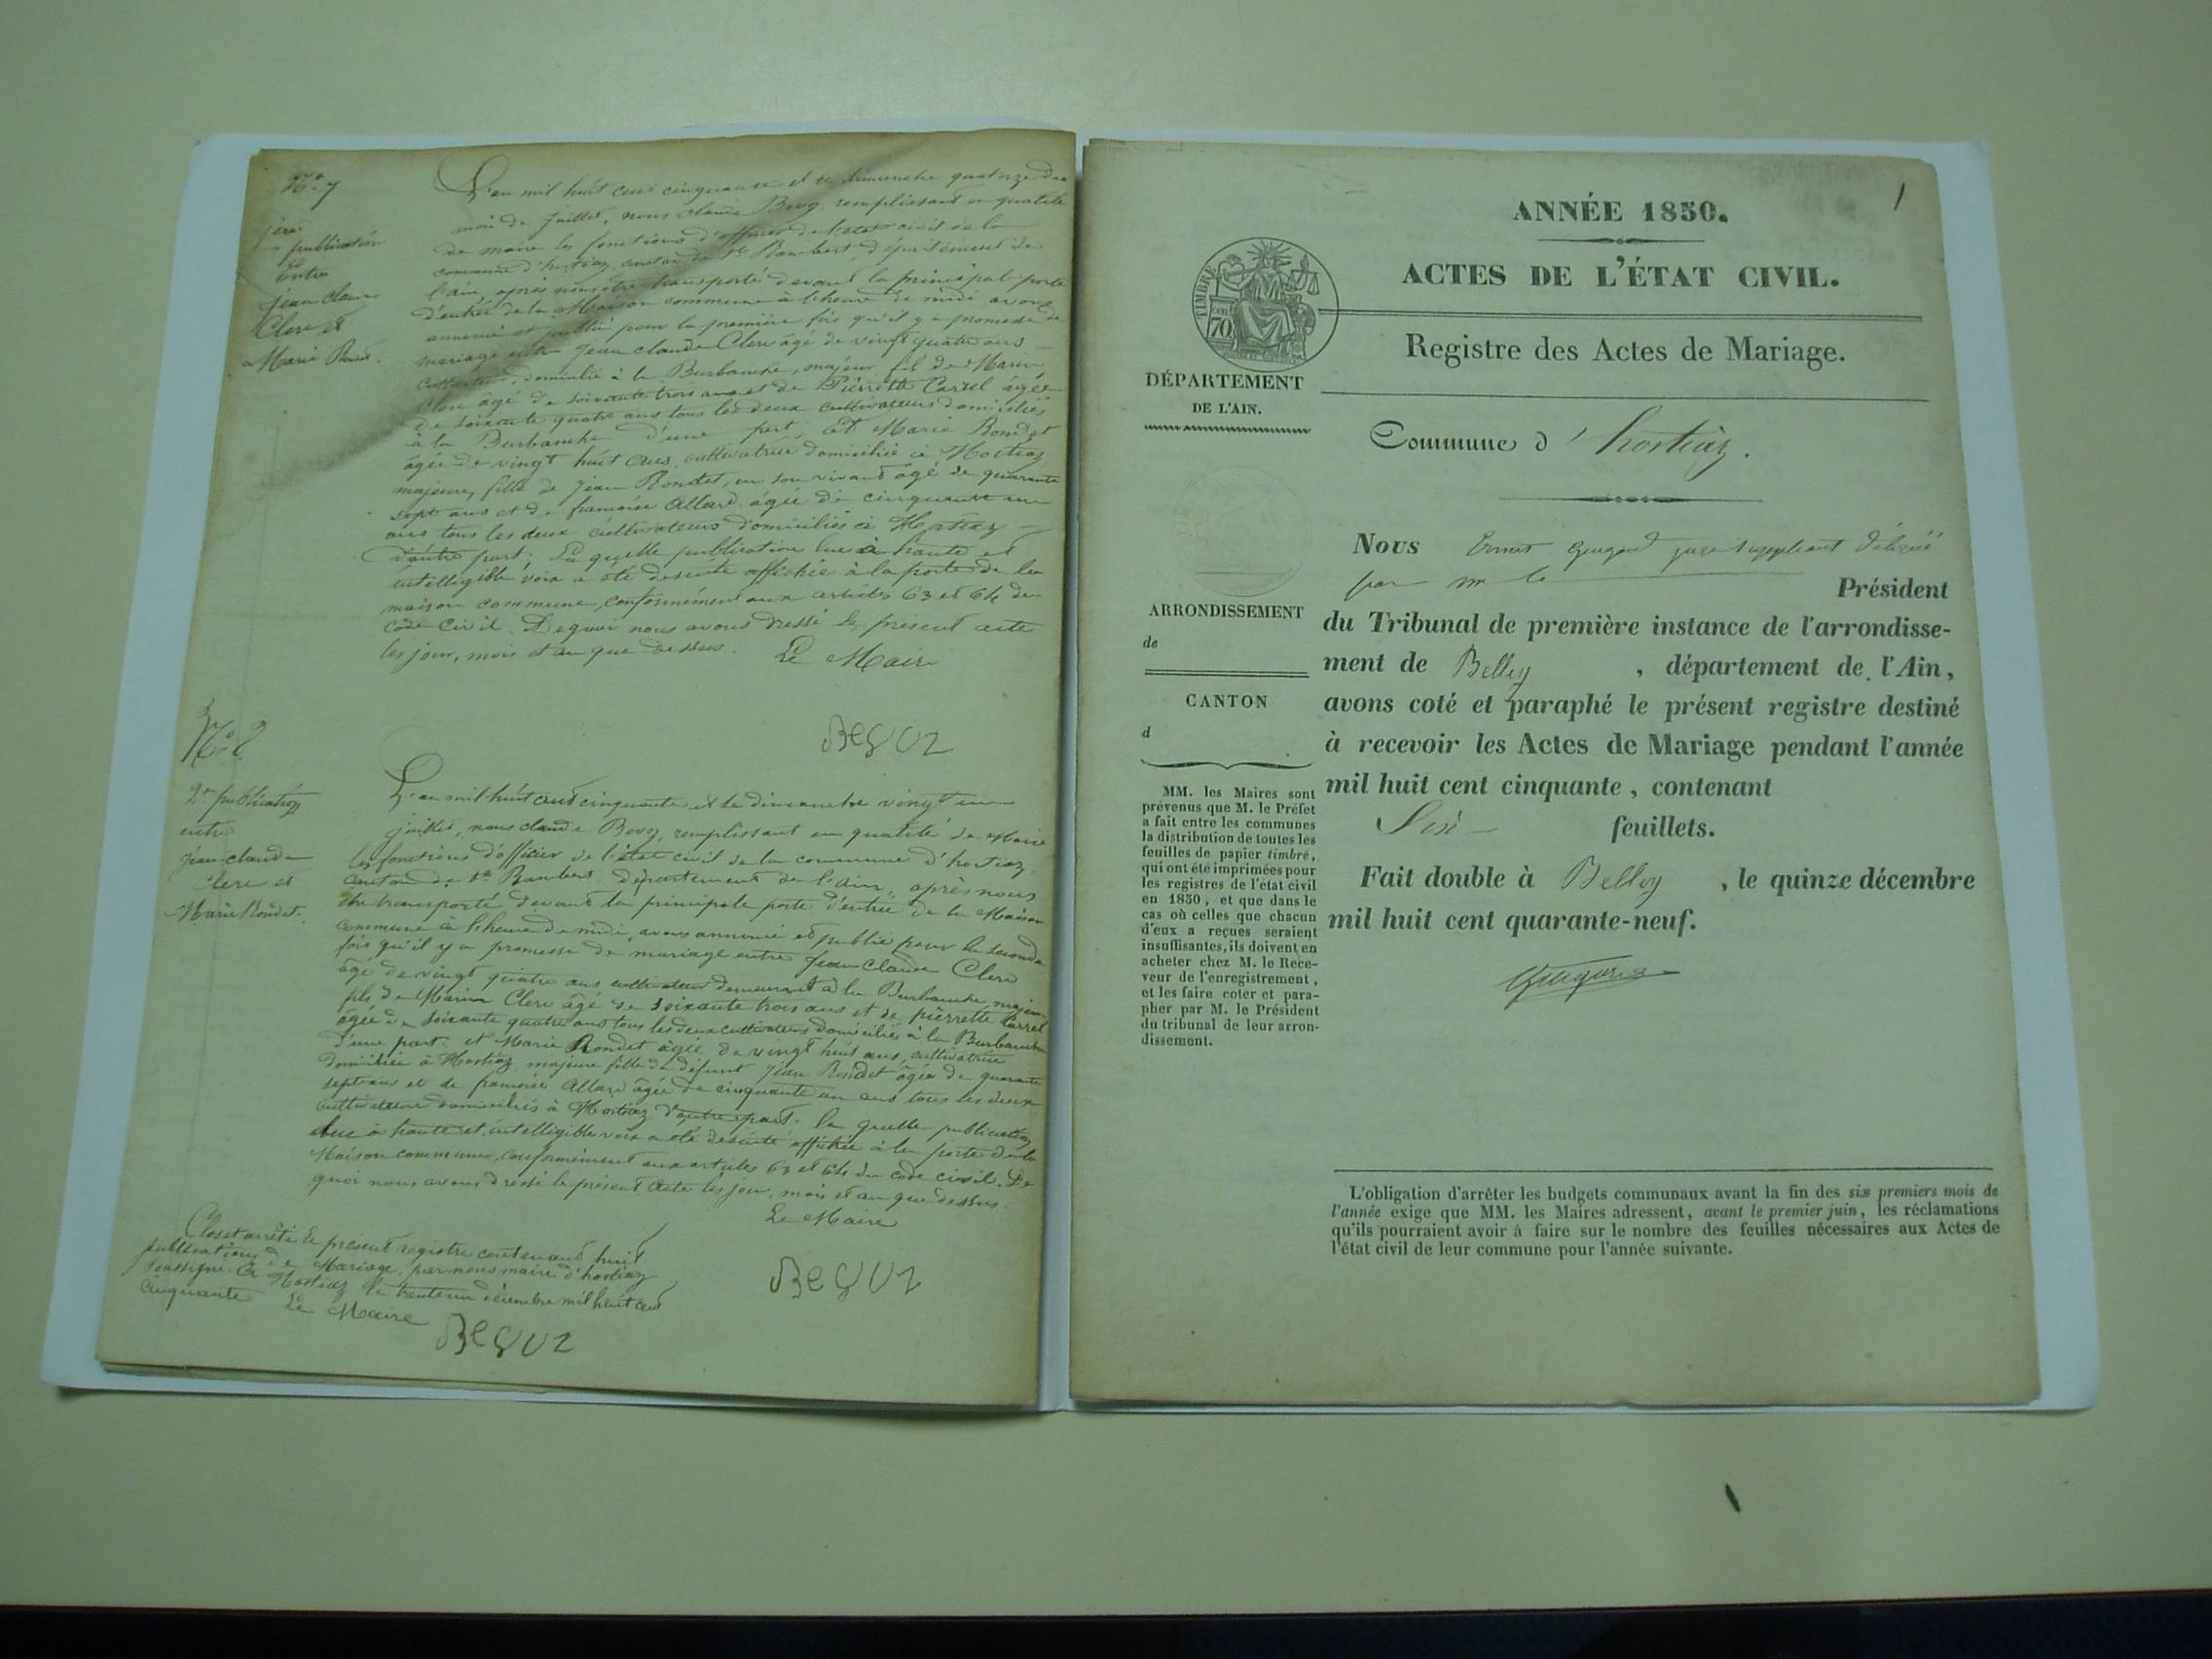 N° 7
1ère publication
Entre
Jean Claude
Clerc et
Marie Rondet.
L'an mil huit cent cinquante et le dimanche quatorze du
mois de juillet, nous Claude Bevoz remplissant en qualité
de maire les fonctions d'officier de l'état civil de la
commune d'hostiaz canton de St Rambert, département de
l'ain, après nous être transporté devant la principal porte
d'entrée de la Maison commune à l'heure de midi avons
annoncé et publié pour la première fois qu'il y a promesse de
mariage entre Jean Claude Clerc âgé de vingt quatre ans
cultivateur, domicilié à la Burbanche, majeur fils de Marin
Clerc âgé de soixante trois ans et de Pierrette Carrel âgée
de soixante quatre ans tous les deux cultivateurs domiciliés
à la Burbanche d'une part, Et Marie Rondet
âgée de vingt huit ans, cultivatrice domiciliée à Hostiaz
majeure, fille de Jean Rondet, en son vivant âgé de quarante
sept ans et de françoise Allard âgée de cinquante un
ans tous les deux cultivateurs domiciliés à Hostiaz
d'autre part; La quelle publication lue à haute et
intelligible voix a été desuite affichée à la porte de la
maison commune, conformément aux articles 63 et 64 du
code Civil. De quoi nous avons dressé le présent acte
les jour, mois et an que dessus.
Le Maire
Bevoz
N° 8
2e publication
entre
Jean claude
Clerc et
Marie Rondet.
L'an mil huit cent cinquante et le dimanche vingt un
juillet, nous claude Bevoz, remplissant en qualité de Maire
les fonctions d'officier de l'état civil de la commune d'hostiaz
canton de St Rambert département de l'ain, après nous
être transporté devant la principale porte d'entrée de la Maison
commune à l'heure de midi, avons annoncé et publié pour la seconde
fois qu'il y a promesse de mariage entre Jean Claude Clerc
âgé de vingt quatre ans cultivateur demeurant à la Burbanche, majeur
fils de Marin Clerc âgé de soixante trois ans et de pierrette Carrel
âgée de soixante quatre ans tous les deux cultivateurs domiciliés à la Burbanche
d'une part. et Marie Rondet âgée de vingt huit ans, cultivatrice
domiciliée à Hostiaz, majeure fille de défunt Jean Rondet âgée de quarante
sept ans et de françoise Allard âgée de cinquante un ans tous les deux
cultivateurs domiciliés à Hostiaz d'autre part. la quelle publication
lue à haute et intelligible voix a été desuite affichée à la porte de la
Maison commune, conformément aux articles 63 et 64 du code civil. De
quoi nous avons dressé le présent acte les jour, mois et an que dessus.
Le Maire
Bevoz
Clos et arrêté le présent registre contenant huit
publications de Mariage, par nous maire d'hostiaz
soussigné. à Hostiaz le trente un décembre mil huit cent
cinquante
Le Maire
Bevoz
1
ANNÉE 1850.
ACTES DE L'ÉTAT CIVIL.
TIMBRE
70
Registre des Actes de Mariage.
DÉPARTEMENT
DE L'AIN.
Commune d'hostiaz.
Nous Ernest juge suppléant délégué
par m le Président
du Tribunal de première instance de l'arrondisse-
ment de Belley, département de l'Ain,
avons coté et paraphé le présent registre destiné
à recevoir les Actes de Mariage pendant l'année
mil huit cent cinquante, contenant
Six feuillets.
Fait double à Belley, le quinze décembre
mil huit cent quarante-neuf.
ARRONDISSEMENT
de
CANTON
d
MM. les Maires sont
prévenus que M. le Préfet
a fait entre les communes
la distribution de toutes les
feuilles de papier timbré,
qui ont été imprimées pour
les registres de l'état civil
en 1850, et que dans le
cas où celles que chacun
d'eux a reçues seraient
insuffisantes, ils doivent en
acheter chez M. le Rece-
veur de l'enregistrement,
et les faire coter et para-
pher par M. le Président
du tribunal de leur arron-
dissement.
L'obligation d'arrêter les budgets communaux avant la fin des six premiers mois de
l'année exige que MM. les Maires adressent, avant le premier juin, les réclamations
qu'ils pourraient avoir à faire sur le nombre des feuilles nécessaires aux Actes de
l'état civil de leur commune pour l'année suivante.